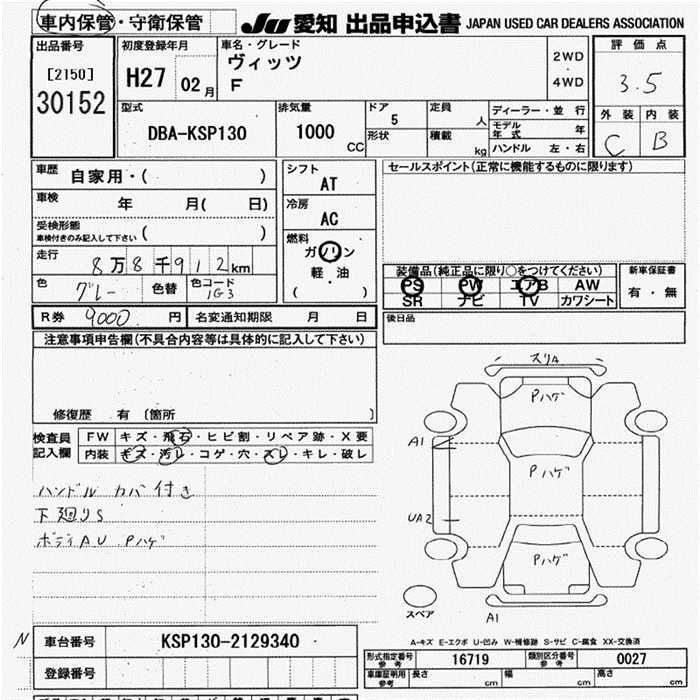 車内保管・守衛保管
JU 愛知 出品申込書 JAPAN USED CAR DEALERS ASSOCIATION
出品番号
[2150]
30152
初度登録年月
H27 02月
車名・グレード
ヴィッツ
F
2WD
・
4WD
評価点
3.5
外装 内装
C B
型式
DBA-KSP130
排気量
1000 CC
ドア
5
形状
定員
人
積載
kg
ディーラー・並行
モデル年式 年
ハンドル 左・右
車歴
自家用・( )
車検
年 月( 日)
受検形態
車検付きのみ記入して下さい ( )
走行
8万8千912km
色
グレー
色替
色コード
1G3
シフト
AT
冷房
AC
燃料
ガソリン
軽・油
( )
セールスポイント(正常に機能するものに限ります)
装備品(純正品に限り○をつけてください)
PS PW エアB AW
SR ナビ TV カワシート
新車保証書
有・無
R券 9000 円
名変通知期限 月 日
後日品
注意事項申告欄(不具合内容等は具体的に記入して下さい)
修復歴 有 〔箇所 〕
検査員
記入欄
FW キズ・飛石・ヒビ割・リペア跡・X要
内装 キズ・汚レ・コゲ・穴・スレ・キレ・破レ
ハンドル カバー付き
下廻りS
ボディAU Pハゲ
スリA
Pハゲ
A1
Pハゲ
UA2
Pハゲ
スペア
A1
A-キズ E-エクボ U-凹み W-補修跡 S-サビ C-腐食 XX-交換済
N
車台番号 KSP130-2129340
登録番号
形式指定番号
参考
16719
類別区分番号
参考
0027
車庫証明用
参考
長さ cm 幅 cm 高さ cm